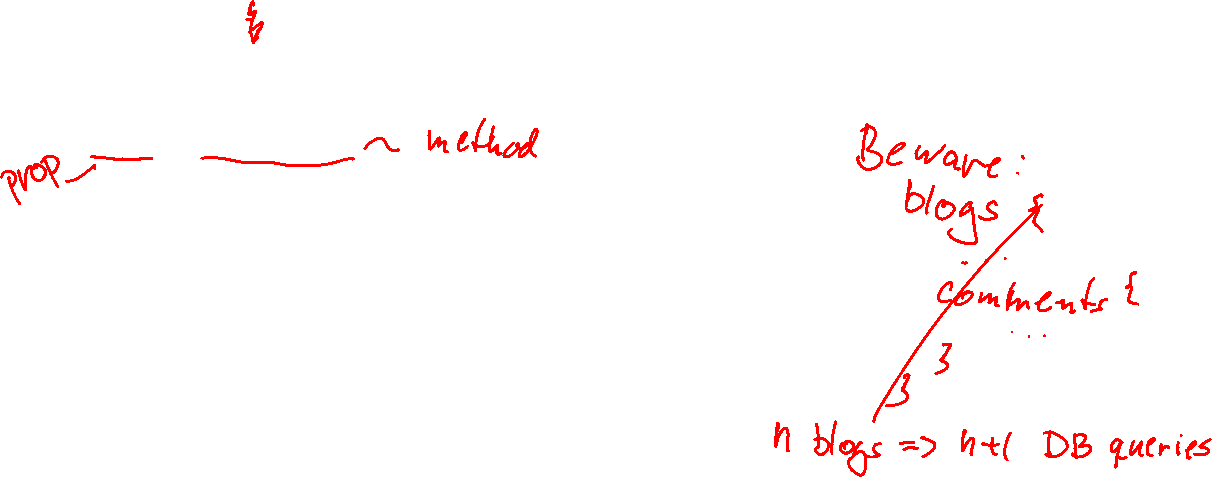 method
prop
Beware:
blogs {
. . .
comments {
. . .
}
}
n blogs => n+1 DB queries